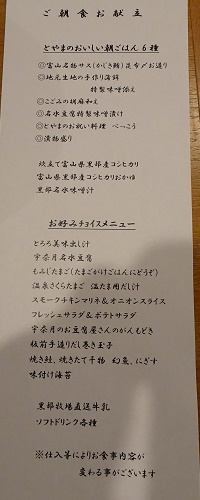 ご朝食お献立
とやまのおいしい朝ごはん6種
◎富山名物サス(かじき鮪)昆布〆お造り
◎地元生地の手作り蒲鉾
特製味噌添え
◎こごみの胡麻和え
◎名水豆腐特製味噌漬け
◎とやまのお祝い料理 べっこう
◎漬物盛り
炊立て富山県黒部産コシヒカリ
富山県黒部産コシヒカリおかゆ
黒部名水味噌汁
お好みチョイスメニュー
とろろ美味出し汁
宇奈月名水豆腐
もみじたまご(たまごかけごはんにどうぞ)
温泉さくらたまご 温たま用だし汁
スモークチキンマリネ&オニオンスライス
フレッシュサラダ&ポテトサラダ
宇奈月のお豆腐屋さんのがんもどき
板前手造りだし巻き玉子
焼き鮭、焼きたて干物 幻魚、にぎす
味付け海苔
黒部牧場直送牛乳
ソフトドリンク各種
※仕入等によりお食事内容が
変わる事がございます